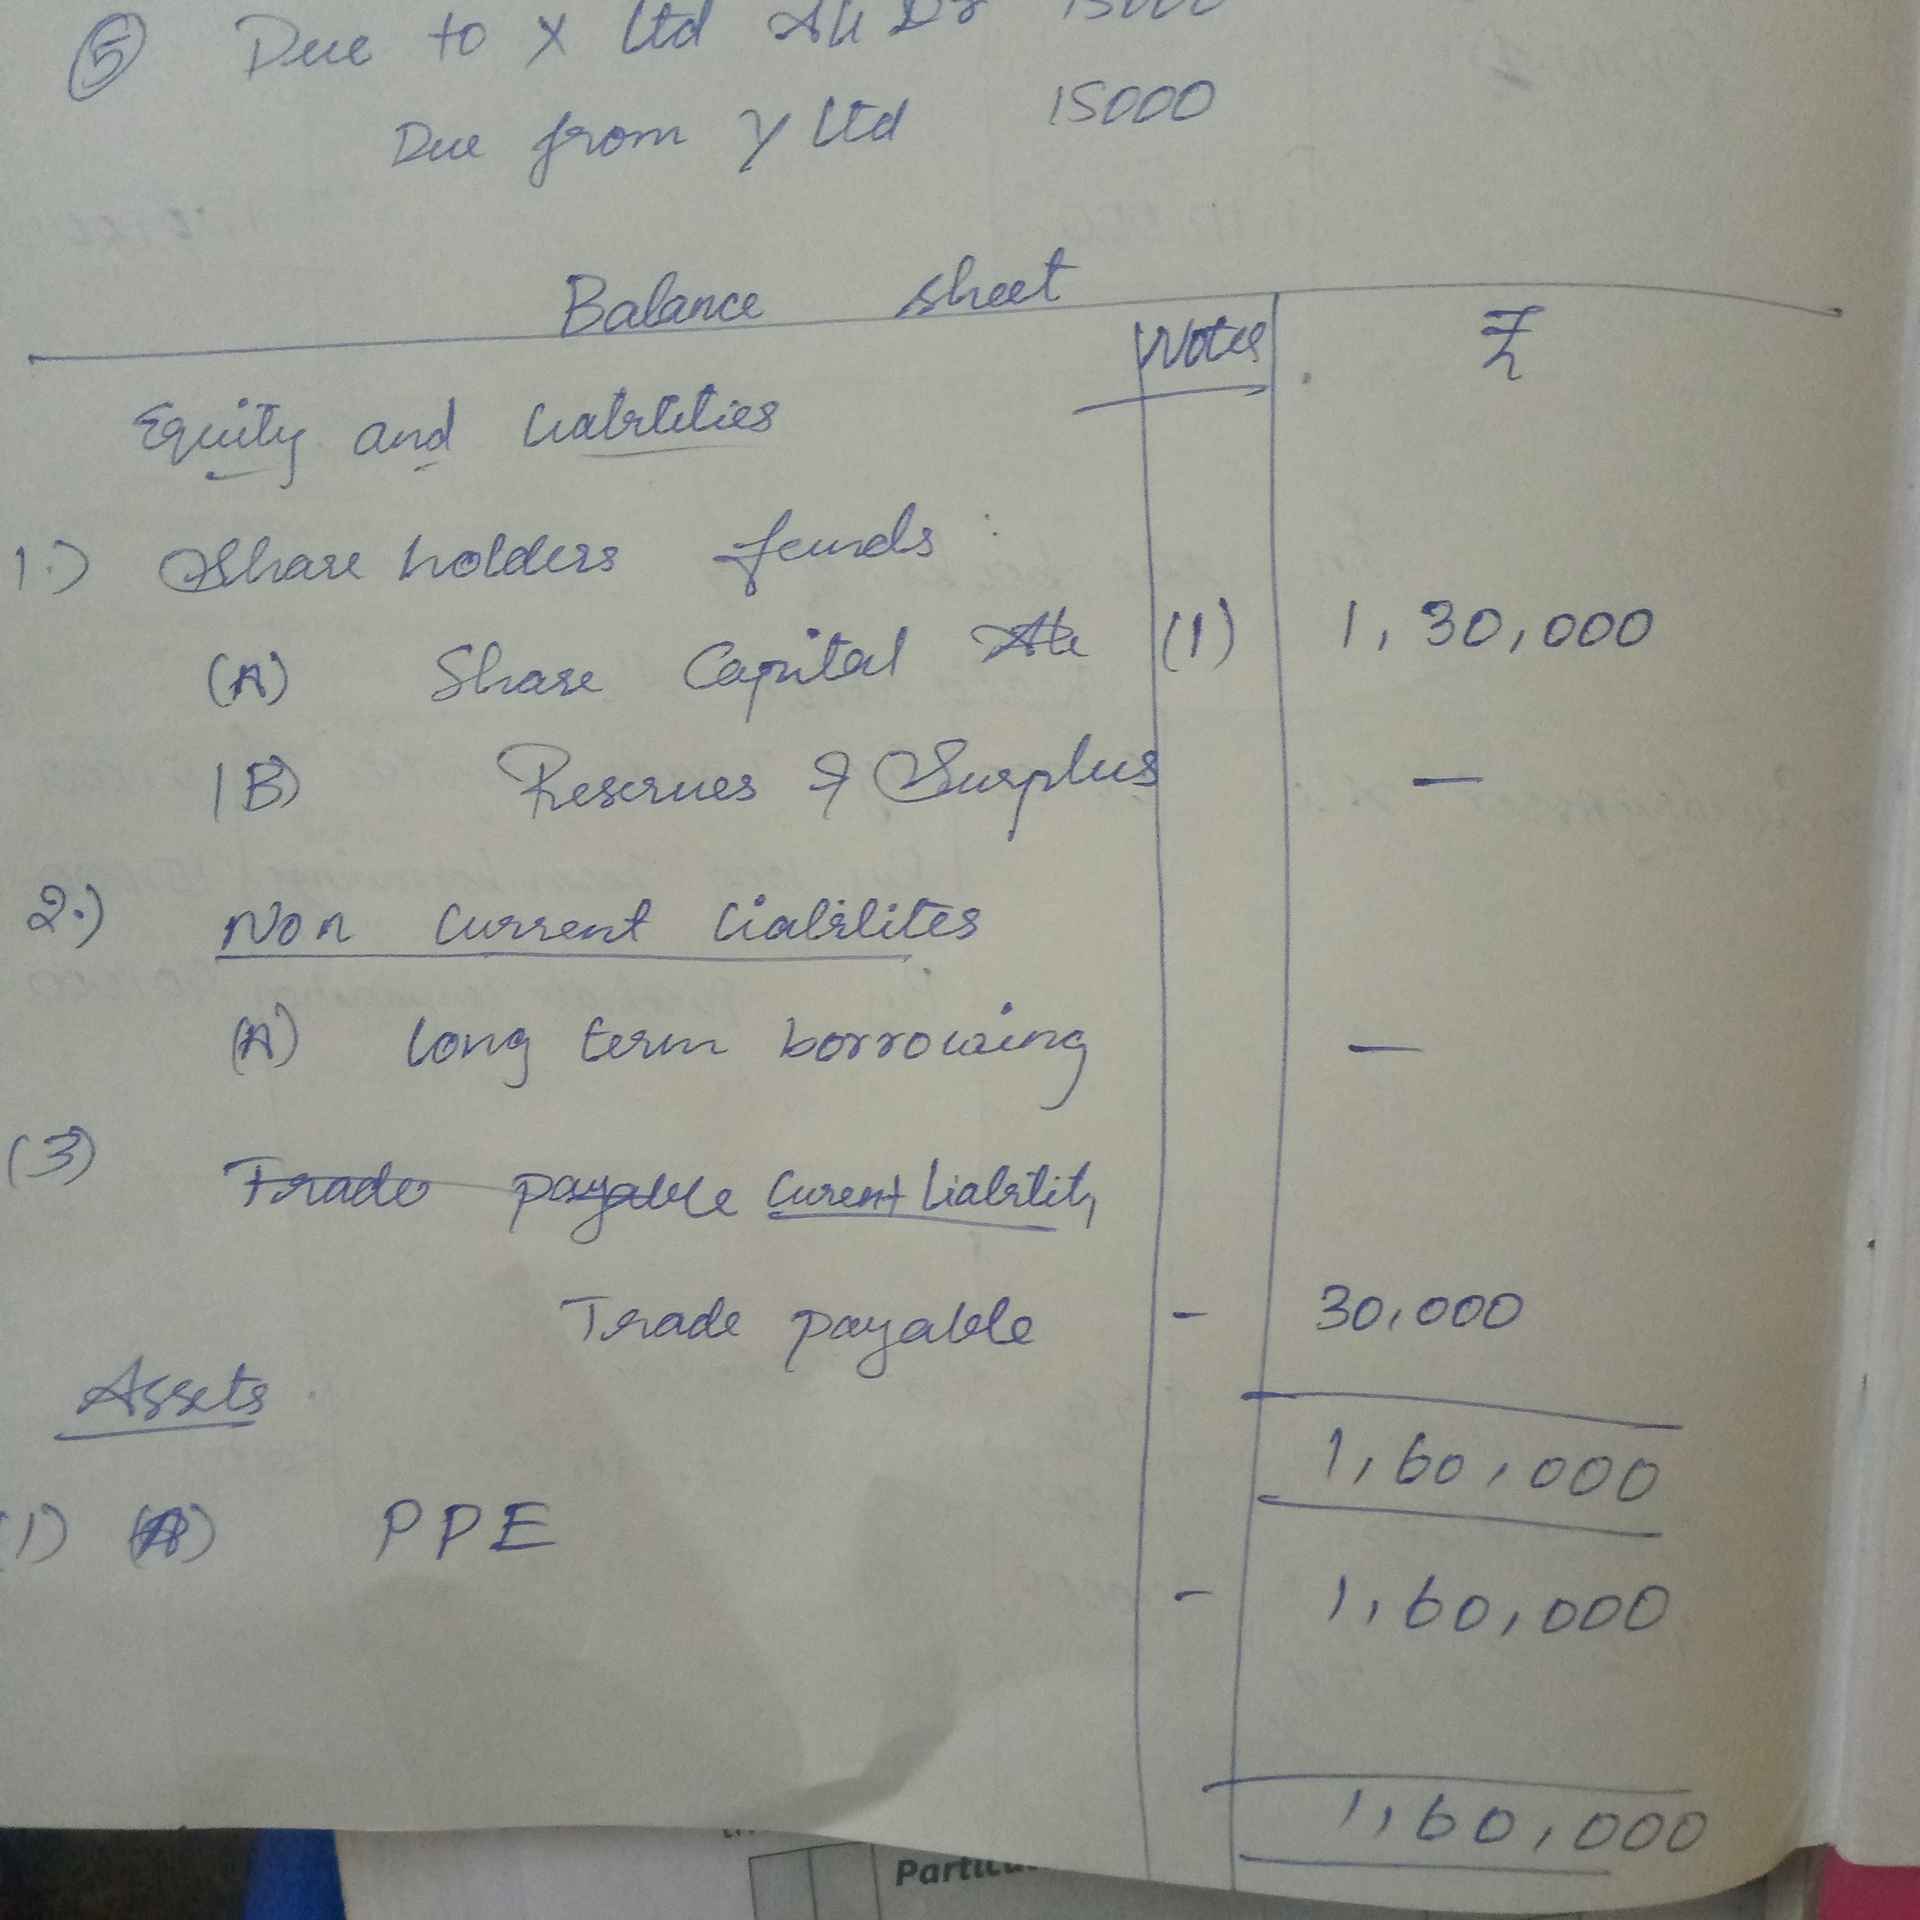 5 Due to X Ltd A/c Dr 15000
Due from Y Ltd 15000
Balance sheet
Notes ₹
Equity and Liabilities
1.) Share holders funds :
(A) Share Capital A/c (1) 1,30,000
(B) Reserves & Surplus —
2.) Non current Liabilites
(A) long term borrowing —
(3) Trade payable Curent Liability
Trade payable - 30,000
1,60,000
Assets
1) (A) PPE - 1,60,000
1,60,000